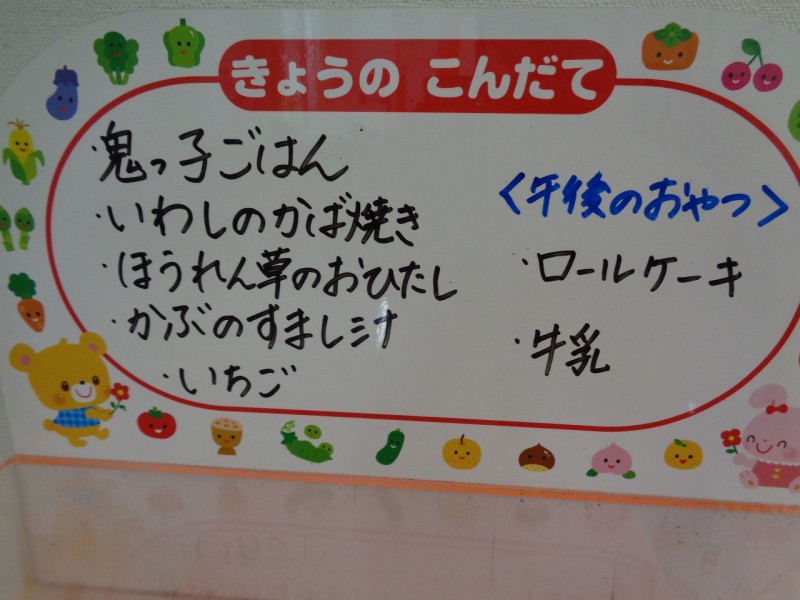 きょうの こんだて
・鬼っ子ごはん
・いわしのかば焼き
・ほうれん草のおひたし
・かぶのすまし汁
・いちご
〈午後のおやつ〉
・ロールケーキ
・牛乳